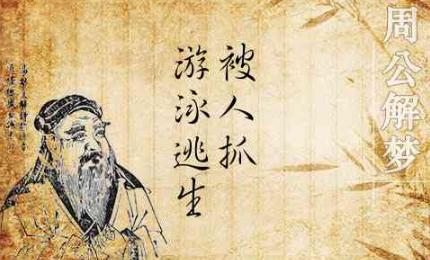 周公解梦
被人抓
游泳逃生